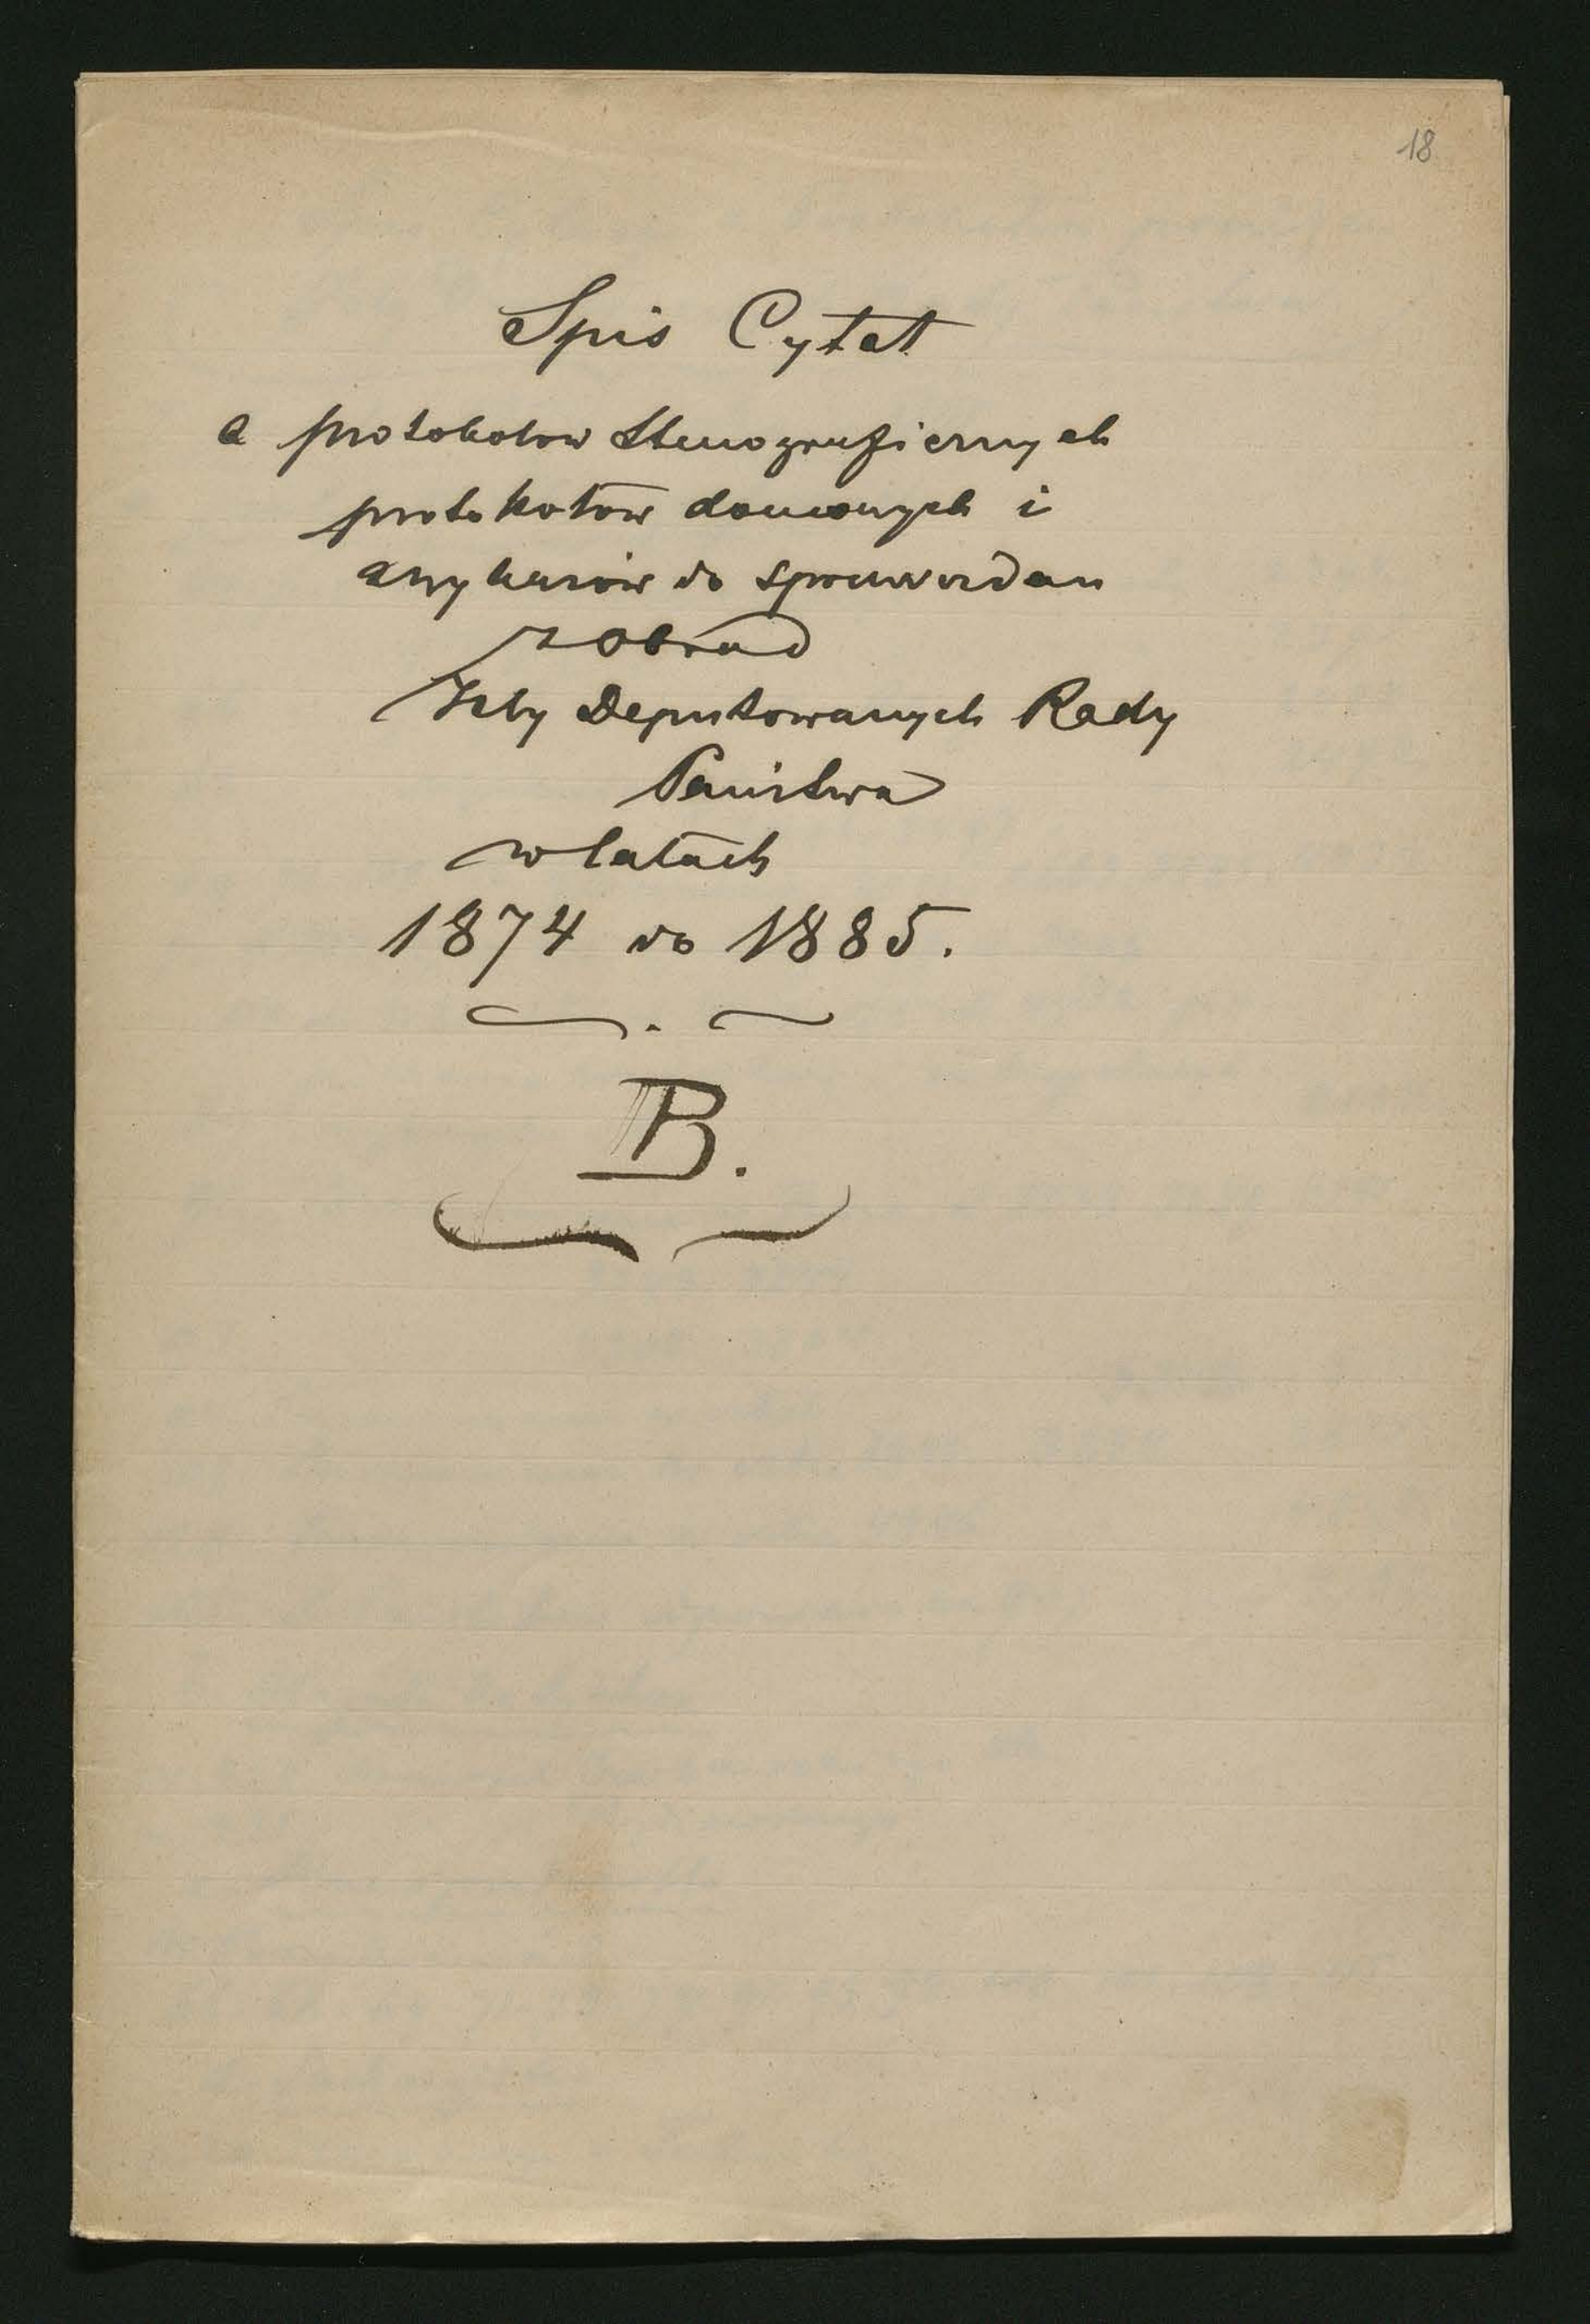 18
Spis Cytat
a protokołow stenograficznych
protokołów domowych i
do sprawozdan
z obrad
Izby Deputowanych Rady
Państwa
w latach
1874 do 1885.
B.